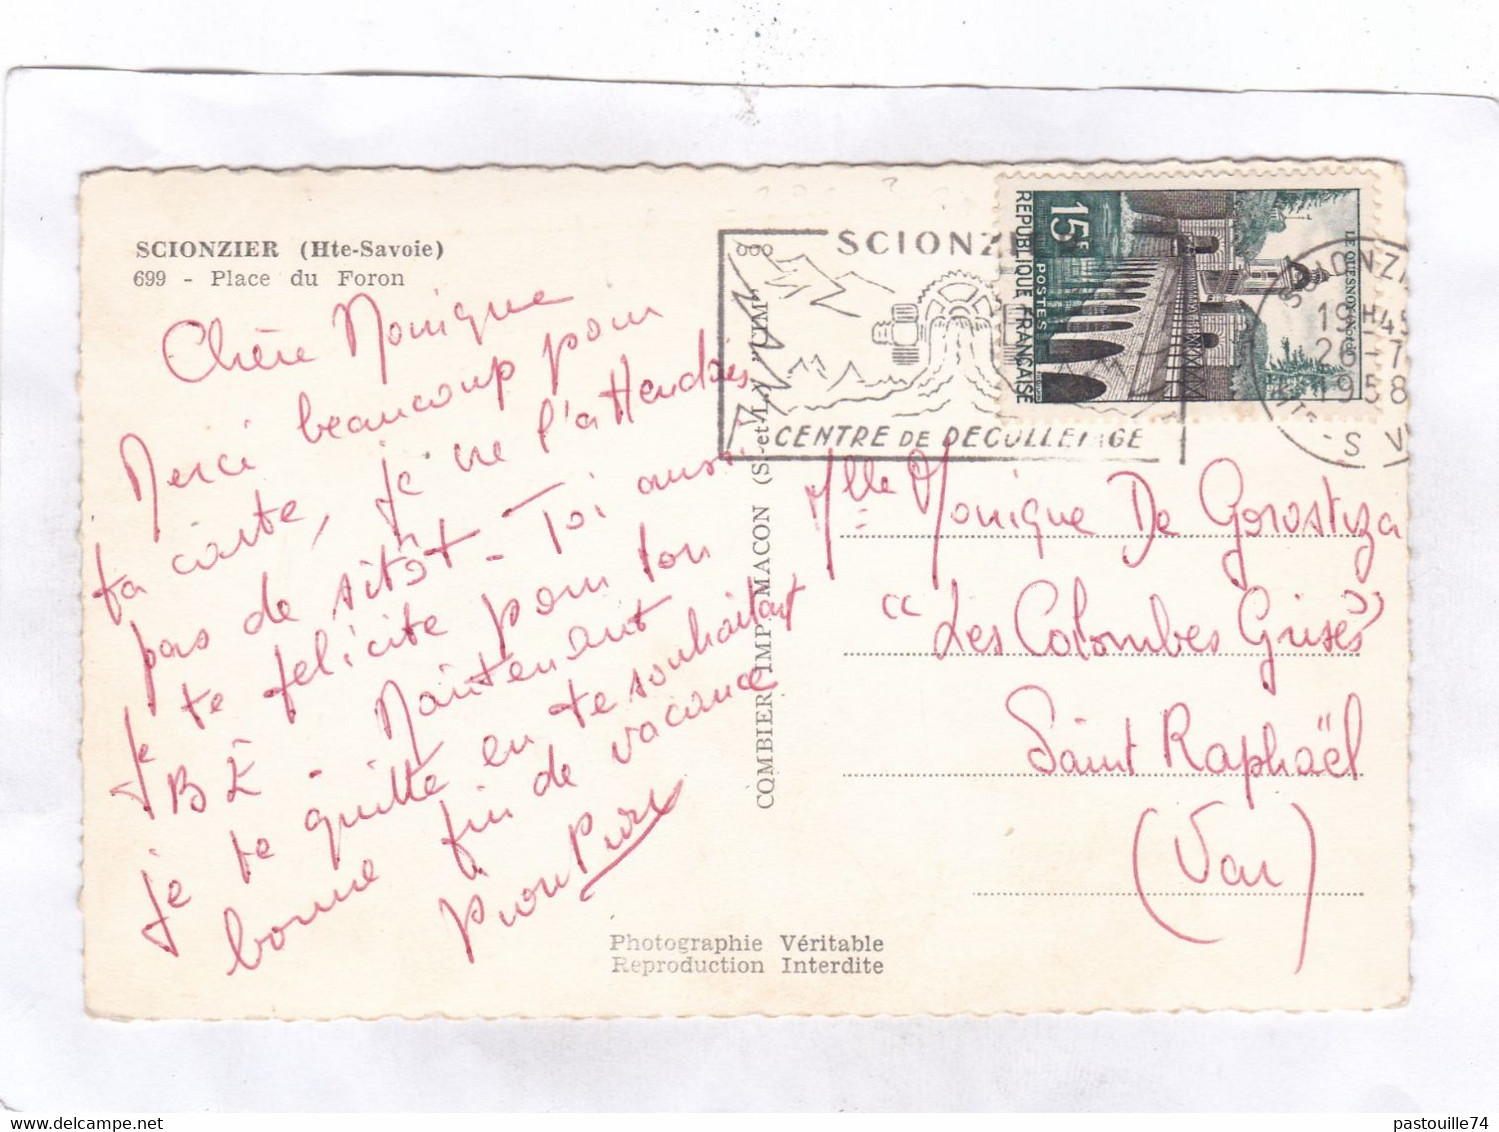 SCIONZIER (Hte-Savoie)
699 - Place du Foron
Chère Monique
Merci beaucoup pour
ta carte, je ne l'attendais
pas de sitôt - Toi aussi
je te félicite pour ton
B E - Maintenant
je te quitte en te souhaitant
bonne fin de vacance
COMBIER IMP. MACON (S.-et-L.) "CIM"
SCIONZ
CENTRE DE DECOLLETAGE
15F
POSTES
REPUBLIQUE FRANÇAISE
LE QUESNOY
SCIONZI
19H45
26-7
1958
Mlle Monique De Gorostiza
"Les Colombes Grises"
Saint Raphaël
(Var)
Photographie Véritable
Reproduction Interdite
pastouille74